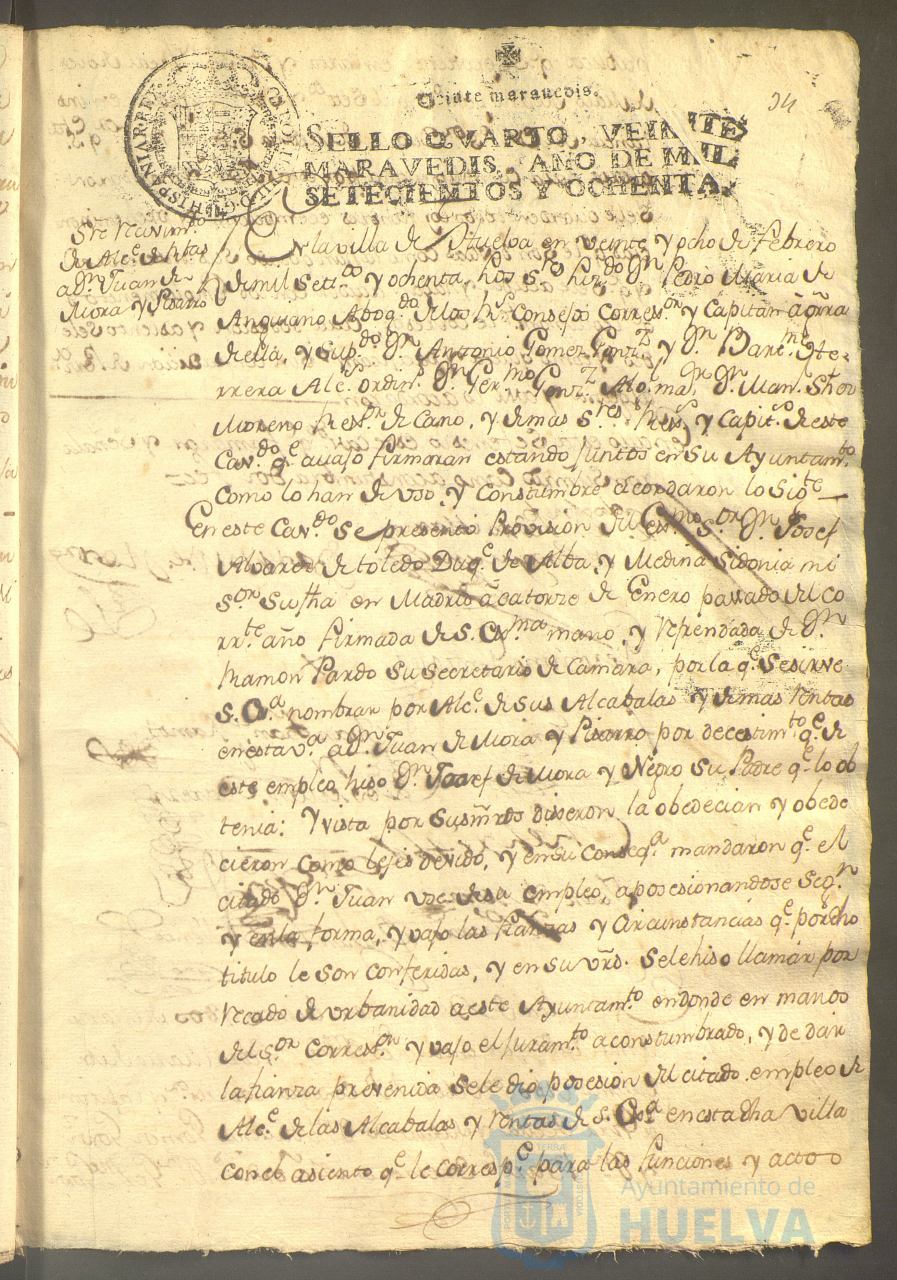 Veinte marauedis.
24
SELLO QVARTO, VEINTE
MARAVEDIS, AÑO DE MIL
SETECIENTOS Y OCHENTA.
CAROLUS III D.G. HISPANIAR. REX
Sre Recivim.to
de Alc.e de Rtas
a D.n Juan de
Mora y Pisarro
En la villa de Huelva en veinte y ocho de Febrero
de mil Setz.os y ochenta, los S.res Liz.do D.n Pedro Maria de
Anguiano Abog.do de los R.s Consejos Correx.or y Capitan à grra
de ella, y Sup.do D.n Antonio Gomez Gonz.z y D.n Bart.me He-
rrera Alc.s ordin.s D.n Ger.mo Gonz.z Alg.l ma.r D.n Man.l Shez
Moreno de Cano, y demas S.res y Capit.s de este
Cav.do q.e avajo firmaran estando juntos en su Ayuntam.to
Como lo han de uso, y Constumbre acordaron lo Sig.te
En este Cav.do Se presentó Provision del Ex.mo S.or D.n Josef
Alvares de toledo Duq.e de Alba, y Medina Sidonia mi
S.or Su fha en Madrid à catorze de Enero passado del co
rr.te año firmada de S. Ex.ma mano, y Refrendada de D.n
Ramon Pardo Su Secretario de Camara, por la q.e se sirve
S. Ex.a nombrar por Alc.e de sus Alcabalas y demas Rentas
en esta v.a a D.n Juan de Mora y Pisarro por decestim.to q.e de
este empleo hiso D.n Josef de Mora y Negro Su Padre q.e lo ob
tenia: Y vista por Sus mrds dixeron la obedecian y obede
cieron como les es devido, y en su conseq.a mandaron q.e el
citado D.n Juan use de su empleo, aposesionandose Seg.n
y en la forma, y vajo las fianzas y Circunstancias q.e por dho
titulo le son conferidas, y en su vrd. Se le hiso llamar por
Recado de urbanidad a este Ayuntam.to en donde en manos
del S.or Correx.or y vajo el juram.to aconstumbrado, y de dar
la fianza prevenida Se le dio posesion del citado empleo de
Alc.e de las Alcabalas y Rentas de S. Ex.a en esta dha villa
con el asiento q.e le corresp.e para las funciones y actos
Ayuntamiento de
HUELVA